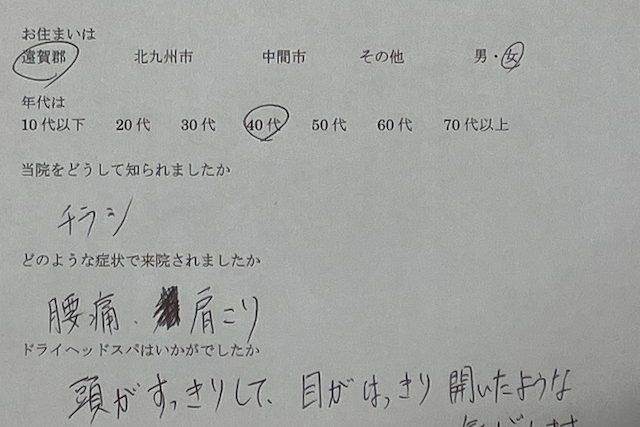 お住まいは
遠賀郡 北九州市 中間市 その他 男・女
年代は
10代以下 20代 30代 40代 50代 60代 70代以上
当院をどうして知られましたか
チラシ
どのような症状で来院されましたか
腰痛、肩こり
ドライヘッドスパはいかがでしたか
頭がすっきりして、目がはっきり開いたような